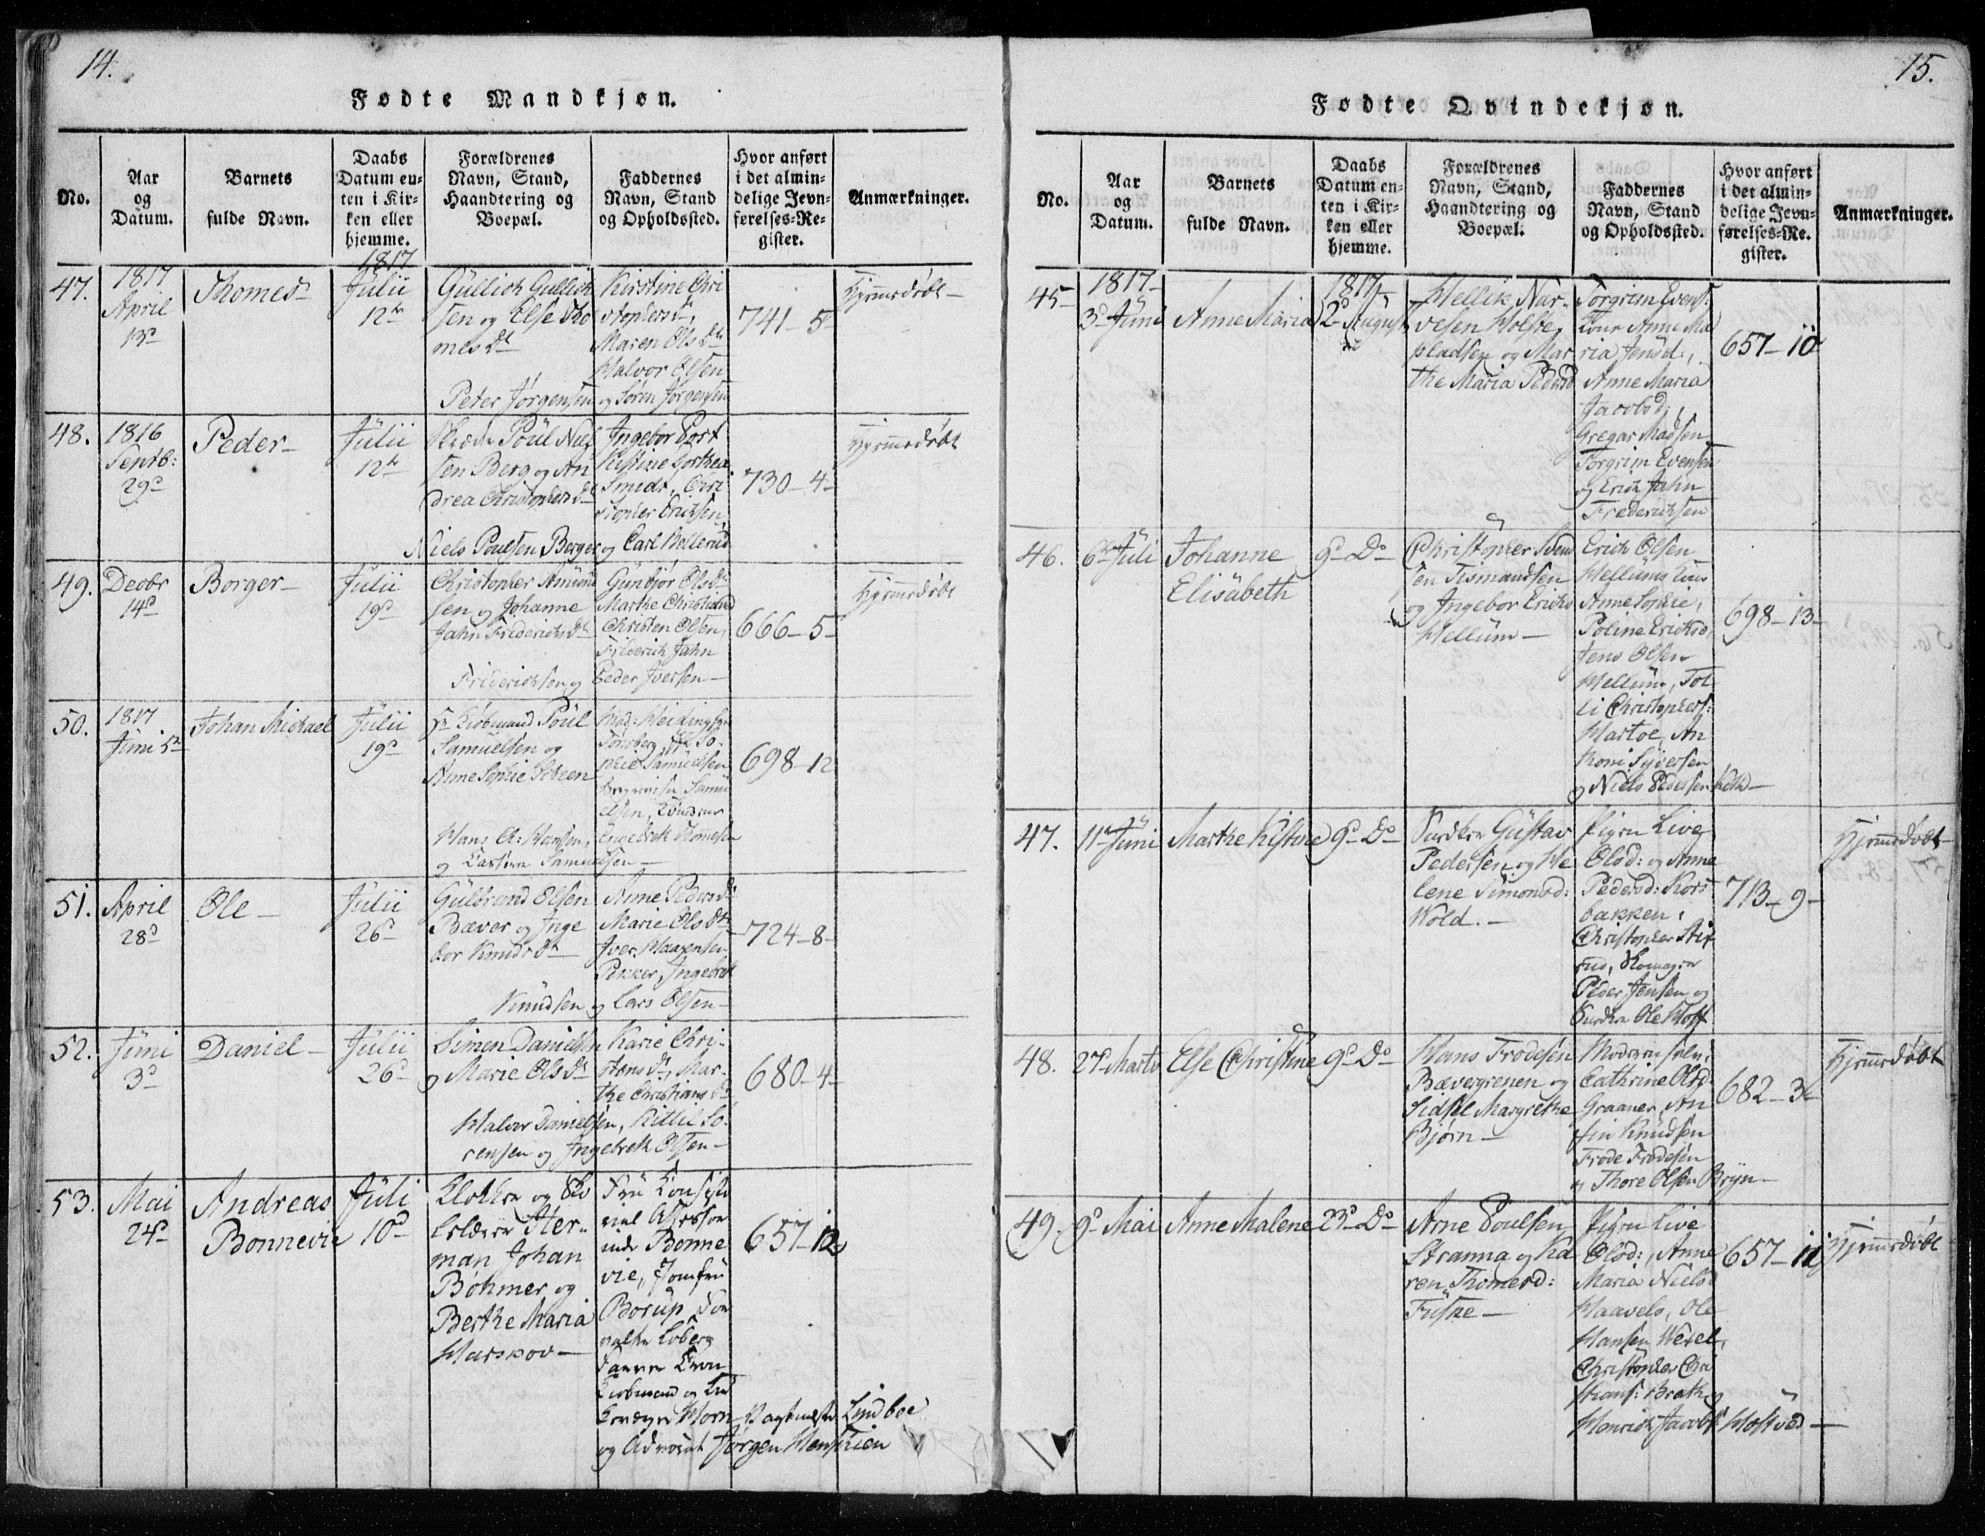 14.
Fødte Mandkjøn.
No.
Aar
og
Datum.
Barnets
fulde Navn.
Daabs
Datum en-
ten i Kir-
ken eller
hjemme.
Forældrenes
Navn, Stand,
Haandtering og
Boepæl.
Faddernes
Navn, Stand
og Opholdssted.
Hvor anført
i det almin-
delige Jevn-
førelses-Re-
gister.
Anmærkninger.
47.
1817
April
13d
Thomes
1817
Julii
12te
Gullich Gullich
sen og Else Tho
mes Dt
Kirstine Chri
stophersd,
Maren Ols Dtr
Halvor Olsen
Peter Jørgensen og Søren Jørgensen
741-5
Hjemmedøbt
48.
1816
Septb:
29d
Peder
Julii
12te
Poul Niel
sen Berg og An
drea Christophers Dt
Ingebor
Kistine Dorthea
Smidt, Chri
stopher Eriksen,
Niels Poulsen Berger og Carl Mellerud
730-4
Hjemmedøbt
49.
Decbr
14d
Borger
Julii
19d
Christopher Amund
sen og Johanne
Jahn Friderichs Dt
Gunbjør Ols Dtr
Marthe Christiansd
Christen Olsen,
Friderich Jahn
Friderichsen og Peder Iversen
666-5
Hjemmedøbt
50.
1817
Juni 5te
Johan Michael
Julii
19d
Kiøbmand Poul
Samuelsen og
Anne Sophie
Tønsberg, So-
phie Samuelsen
Samu
elsen,
Hans A: Hansen, Engebreth Thomesen
og Carsten Samuelsen
698-12
51.
April
28d
Ole
Julii
26d
Guldbrand Olsen
Bæver og Inge
bor Knuds Dt
Anne Peders Dt
Marie Ols Dtr
Iver Haagensen
Pukker, Ingebreth
Knudsen og Lars Olsen
724-8
52.
Juni
3d
Daniel
Julii
26d
Simen Danielsen
og Marie Ols Dt
Karie Chri-
stens Dt, Mar-
the Christians Dt
Halvor Danielsen, Kittil So-
rensen og Ingebreth Olsen
680-4
53.
Mai
24d
Andreas
Bonnevie
Juli
10d
Klokker og Sko
leholder Her-
man Johan
Bøhmer og
Berthe Maria
Harskov
Fru Consisto
rial Assessor
inde Bonne
vie, Jomfru
Borup
Kiøbmand og
Horn Lindboe
og Advocat Jørgen
657-12

15.
Fødte Qvindekjøn.
No.
Aar
og
Datum.
Barnets
fulde Navn.
Daabs
Datum en-
ten i Kir-
ken eller
hjemme.
Forældrenes
Navn, Stand,
Haandtering og
Boepæl.
Faddernes
Navn, Stand
og Opholdssted.
Hvor anført
i det almin-
delige Jevn-
førelses-Re-
gister.
Anmærkninger.
45
1817
3d Juni
Anne Maria
1817
2d August
Hellik Nar-
vesen Holste
pladsen og Mar
the Maria Pedersd
Torgrim Evens:
Kone Anne Ma
ria Jensd:,
Anne Maria
Jacobsd,
Gregar Madsen
Torgrim Evensen
og Erich Jahn
Frederichsen
657-10
46.
6te Juli
Johanne
Elisabeth
9d Do
Christopher Svend
sen Tismandsen
og Ingebor Erichs
Hellum
Erich Olsen
Hellums Kone
Anne Sophie,
Poline Erichsd,
Jens Olsen
Hellum, Tol-
li Christophers:
Hartoe, An
thoni Syversen
og Niels Pedersen
698-13
47.
11te Juni
Marthe Kistine
9d Do
Gustav
Pedersen og He
lene Simonsd:
Wold.
Pigen Live
Olsd: og Anne
Pedersd: Kors
bakken,
Christopher
Peder Jensen og
Ole Hoff
713-9
Hjemmedøbt
48.
27 Marts
Else Christine
9d Do
Hans Frodesen
Bævergrenen og
Sidsel Margrethe
Bjørn
Moderen selv,
Cathrine Olsd:
Graaner, An
fin Knudsen
Frode Frodesen
og Thore Olsen Bryn
682-3
Hjemmedøbt
49.
9d Mai
Anne Malene
23d Do
Arne Poulsen
Stranna og Ka
ren Thomesd:
Fuske
Pigen Live
Olsd:, Anne
Maria Nielsd
Haavels, Ole
Hansen Wedel,
Christopher Chri
stians: Brath og
Henrich Jacobs: Holtved
657-11
Hjemmedøbt